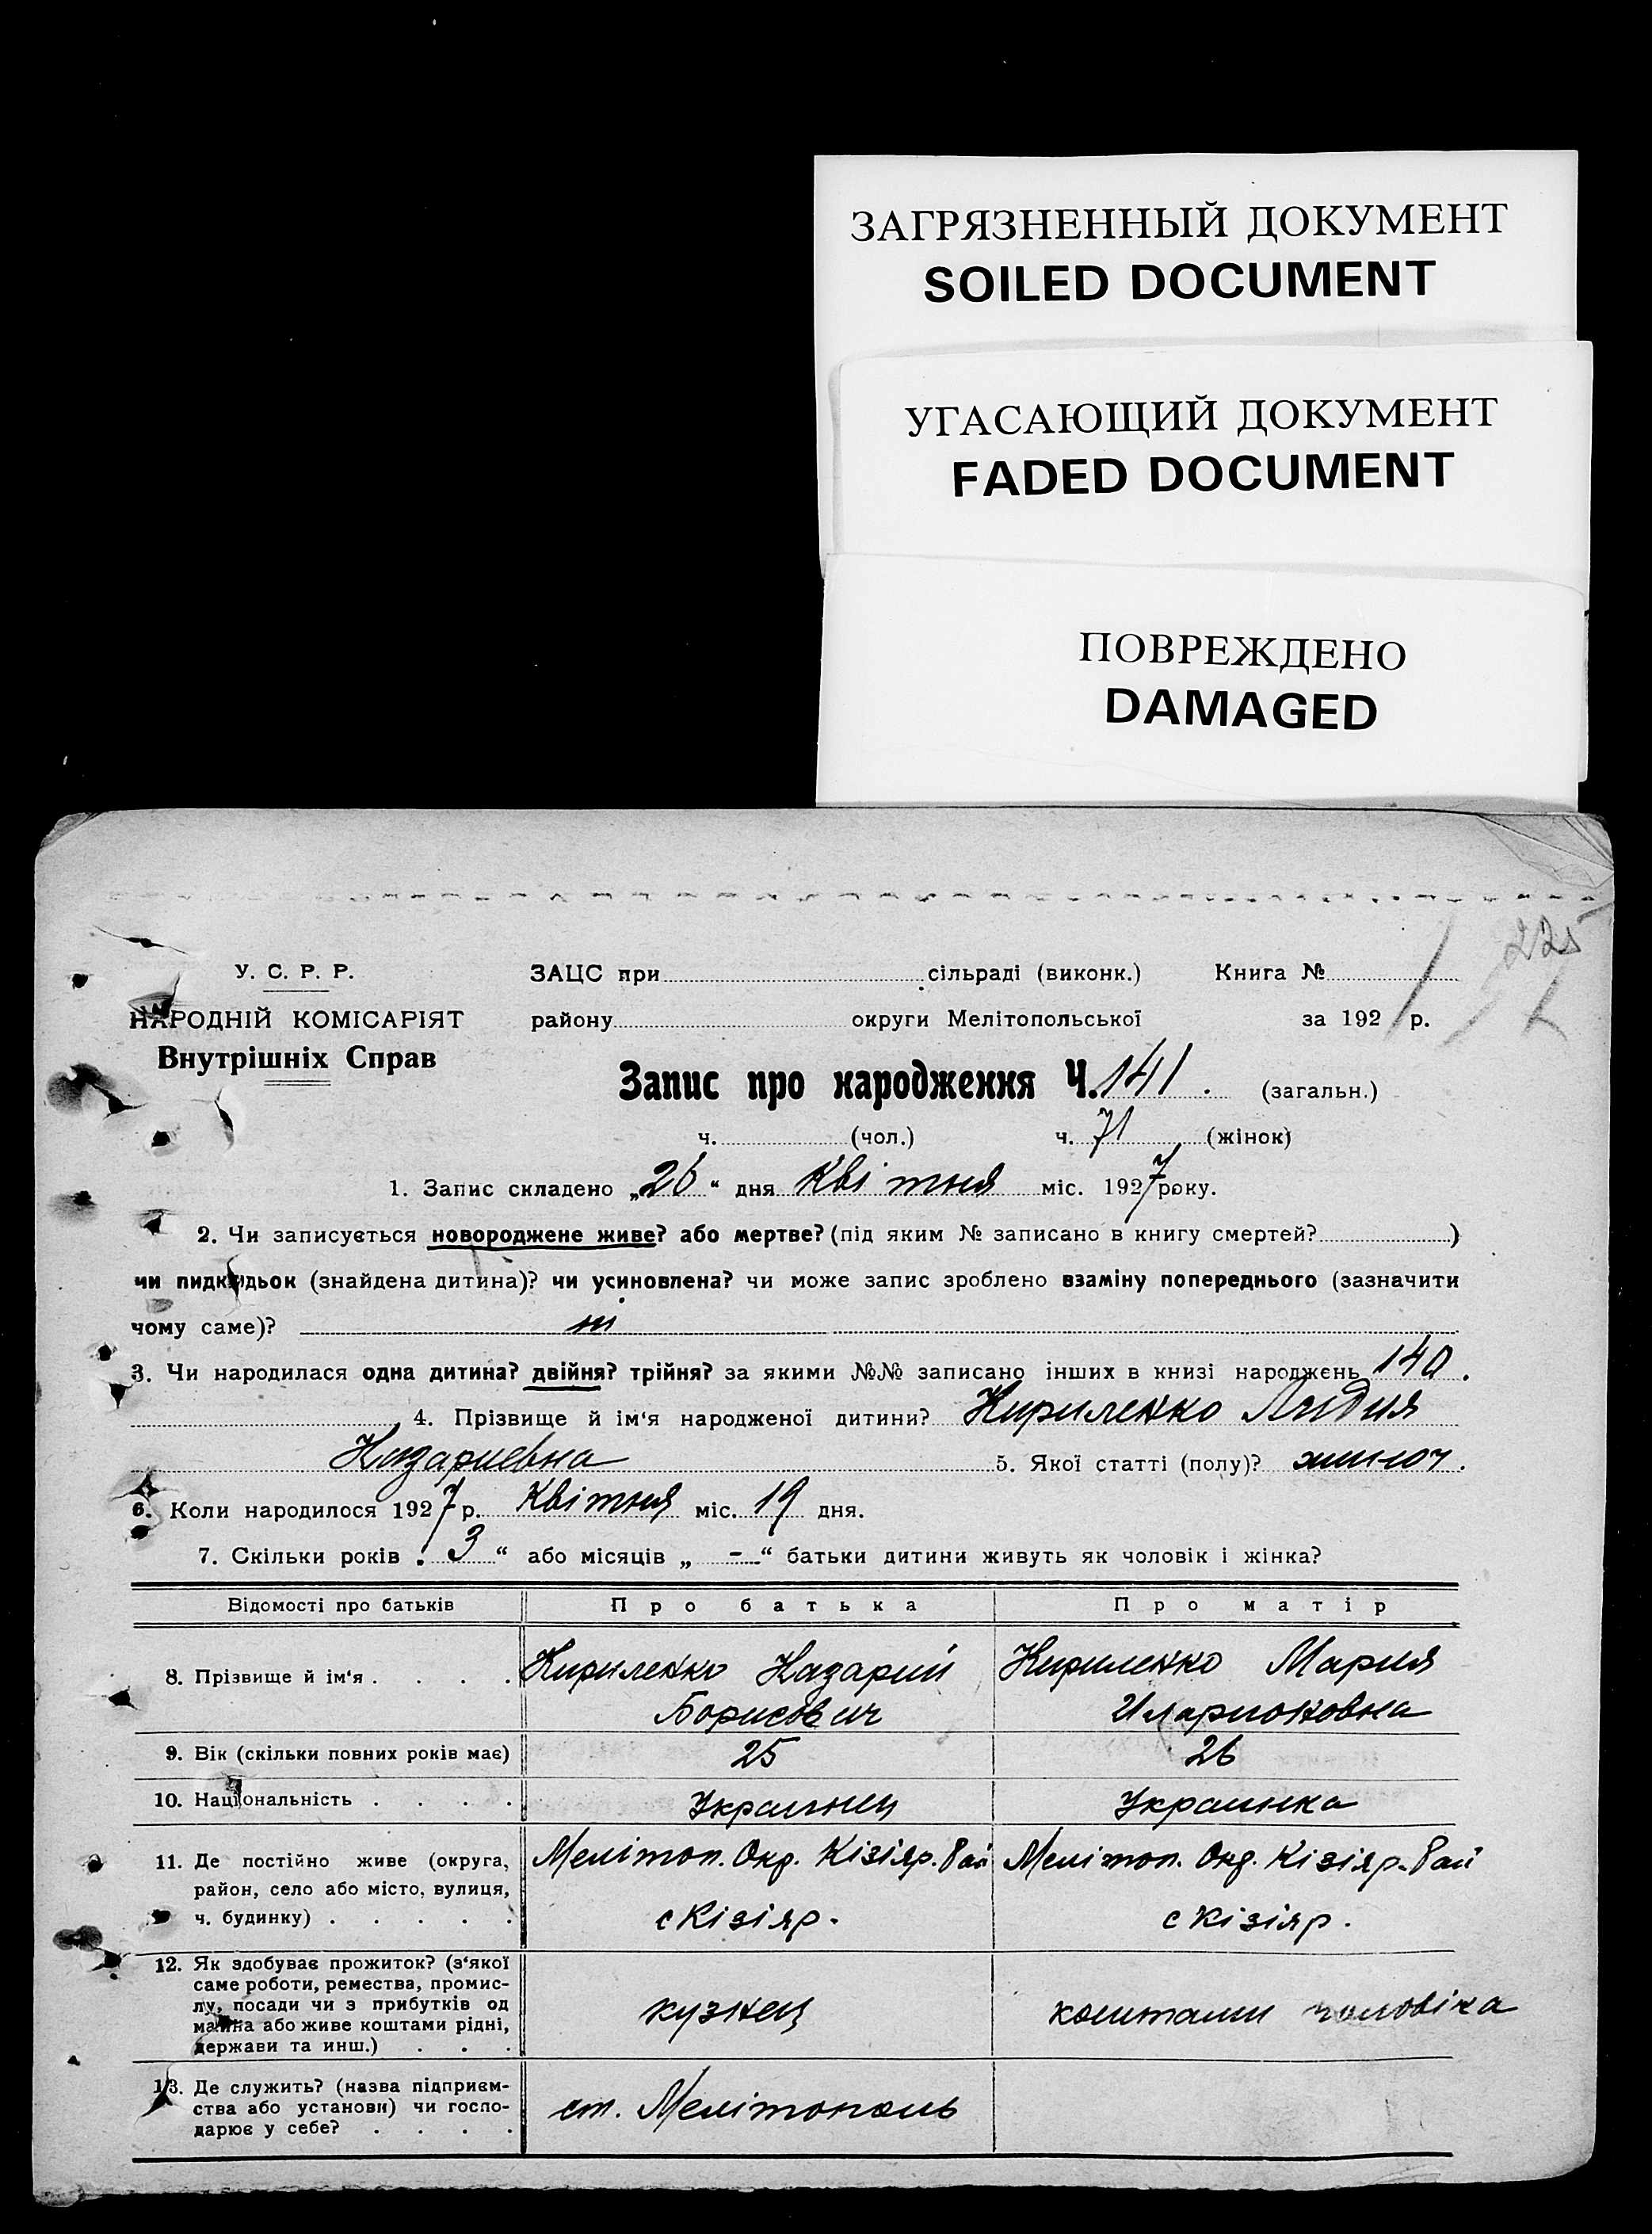 ЗАГРЯЗНЕННЫЙ ДОКУМЕНТ
SOILED DOCUMENT
УГАСАЮЩИЙ ДОКУМЕНТ
FADED DOCUMENT
ПОВРЕЖДЕНО
DAMAGED
225
У. С. Р. Р. ЗАЦС при сільраді (виконк.) Книга №
НАРОДНІЙ КОМІСАРІЯТ району округи Мелітопольської за 192 р.
Внутрішніх Справ
Запис про народження Ч. 141. (загальн.)
ч. (чол.) ч. 71 (жінок)
1. Запис складено „26“ дня Квітня міс. 1927 року.
2. Чи записується новороджене живе? або мертве? (під яким № записано в книгу смертей? )
чи пидкидьок (знайдена дитина)? чи усиновлена? чи може запис зроблено взаміну попереднього (зазначити
чому саме)? ні
3. Чи народилася одна дитина? двійня? трійня? за якими №№ записано інших в книзі народжень 140.
4. Прізвище й ім‘я народженої дитини? Кириленко Лидия
Назариевна 5. Якої статті (полу)? жиноч.
6. Коли народилося 1927 р. Квітня міс. 19 дня.
7. Скільки років „3“ або місяців „ - “ батьки дитини живуть як чоловік і жінка?
Відомості про батьків Про батька Про матір
8. Прізвище й ім‘я . . . . Кириленко Назарий Кириленко Мария
Борисович Иларионовна
9. Вік (скільки повних років має) 25 26
10. Національність . . . . Украинец Украинка
11. Де постійно живе (округа, Мелітоп. Окр. Кізіяр. Рай Мелітоп. Окр. Кізіяр. Рай
район, село або місто, вулиця,
ч. будинку) . . . . . с Кізіяр. с Кізіяр.
12. Як здобуває прожиток? (з‘якої
саме роботи, ремества, промис-
лу, посади чи з прибутків од кузнец коштами чоловіка
майна або живе коштами рідні,
держави та инш.) . . .
13. Де служить? (назва підприєм-
ства або установи) чи госпо- ст. Мелітополь
дарює у себе? . . . .